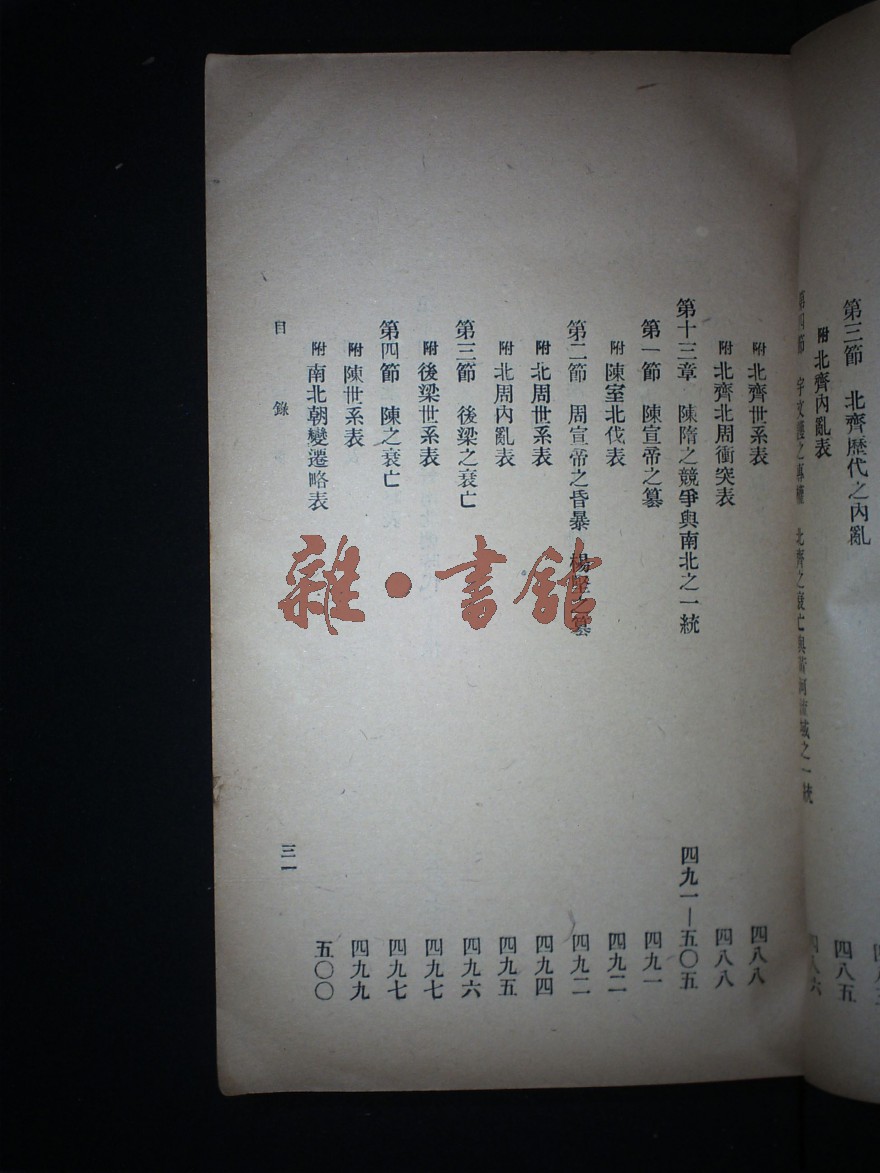 第三節　北齊歷代之內亂　四八五
附北齊內亂表
第四節　宇文護之專權　北齊之衰亡與　河流域之一統　四八六
附北齊世系表　四八八
附北齊北周衝突表　四八八
第十三章　陳隋之競爭與南北之一統　四九一—五〇五
第一節　陳宣帝之篡　四九一
附陳室北伐表　四九二
第二節　周宣帝之昏暴　楊堅之篡　四九二
附北周世系表　四九四
附北周內亂表　四九五
第三節　後梁之衰亡　四九六
附後梁世系表　四九七
第四節　陳之衰亡　四九七
附陳世系表　四九九
附南北朝變遷略表　五〇〇
目　錄　三一
雜·書館